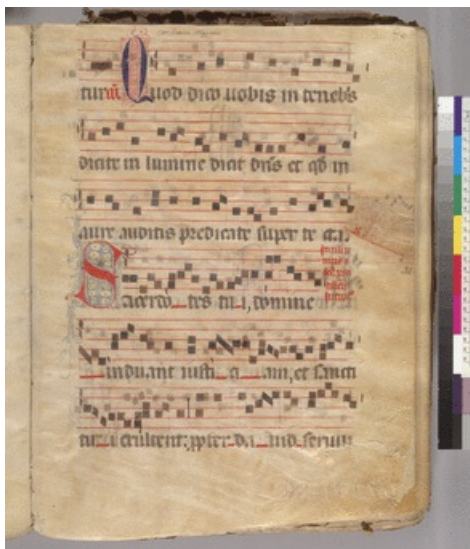 Quod dico uobis in teneb's
dicite in lumine dicit dn̄s et qđ in
aure auditis predicate super te cta.
Sacerdo tes tu i, domine
induant iusti ci am, et sancti
tu i exultent: ꝓpter da uid seruū